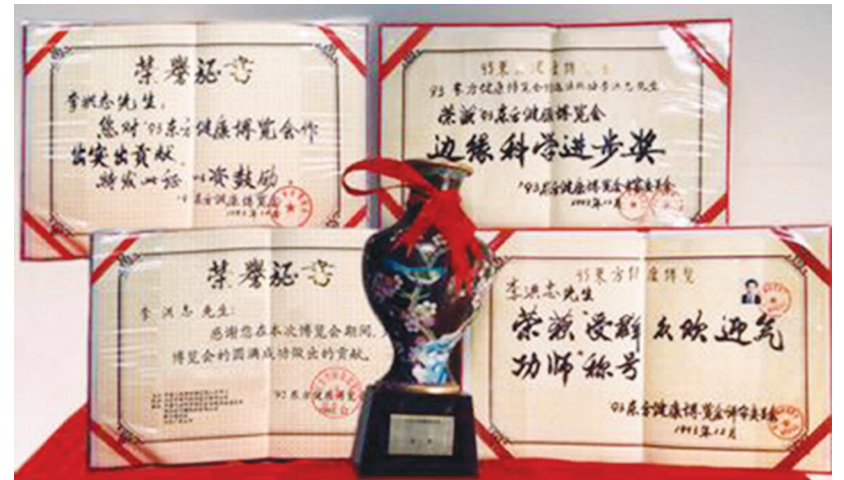 荣誉证书
李洪志先生:
您对'93东方健康博览会作
出突出贡献,
特发此证 以资鼓励。
'93东方健康博览会
'93东方健康博览会
李洪志先生
荣获'93东方健康博览会
边缘科学进步奖
'93东方健康博览会评审委员会
1993年12月
荣誉证书
李洪志先生:
感谢您在本次博览会期间,
博览会的圆满成功做出的贡献。
'93东方健康博览
李洪志先生
荣获"受群众欢迎气
功师"称号
'93东方健康博览会评审委员会
1993年12月